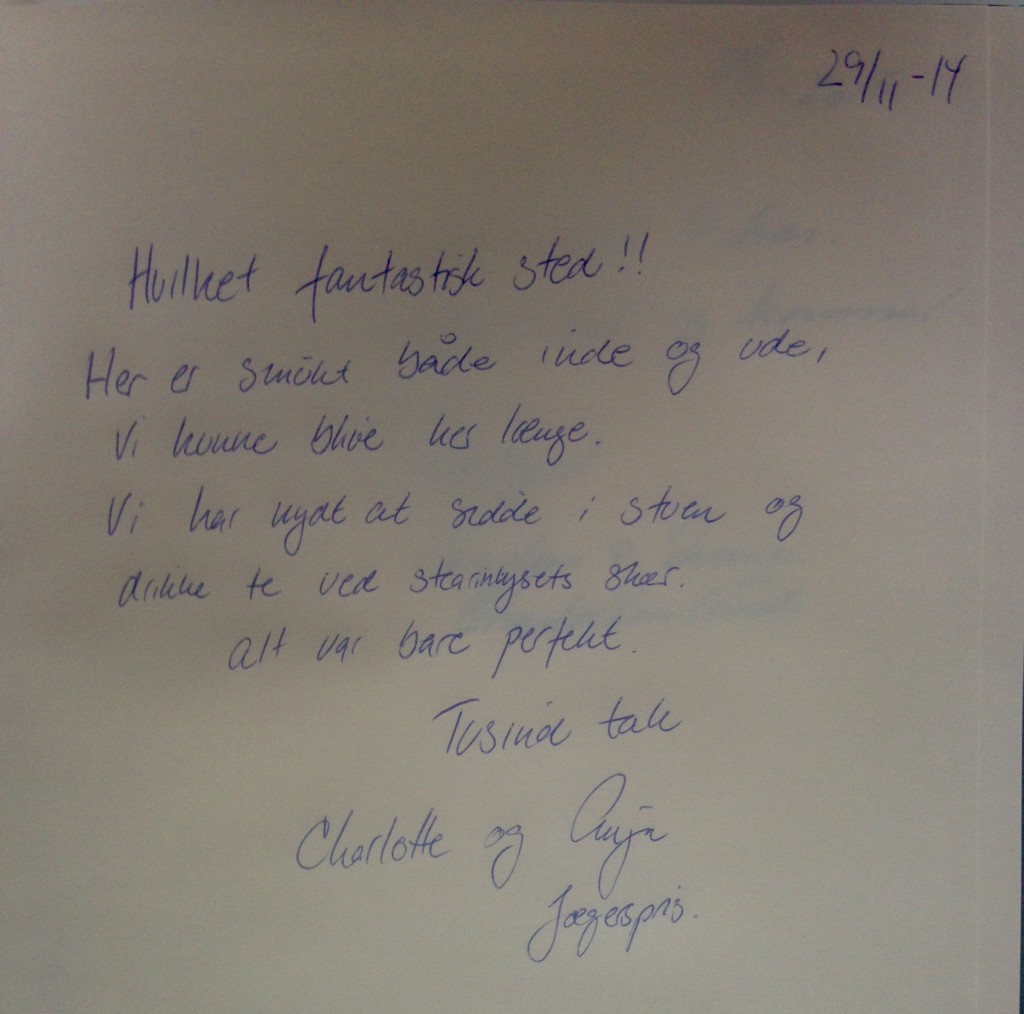 29/11-14
Hvilket fantastisk sted!!
Her er smukt både inde og ude,
Vi kunne blive her længe.
Vi har nydt at sidde i stuen og
drikke te ved stearinlysets skær.
Alt var bare perfekt.
Tusind tak
Charlotte og Anja
Jægerspris.